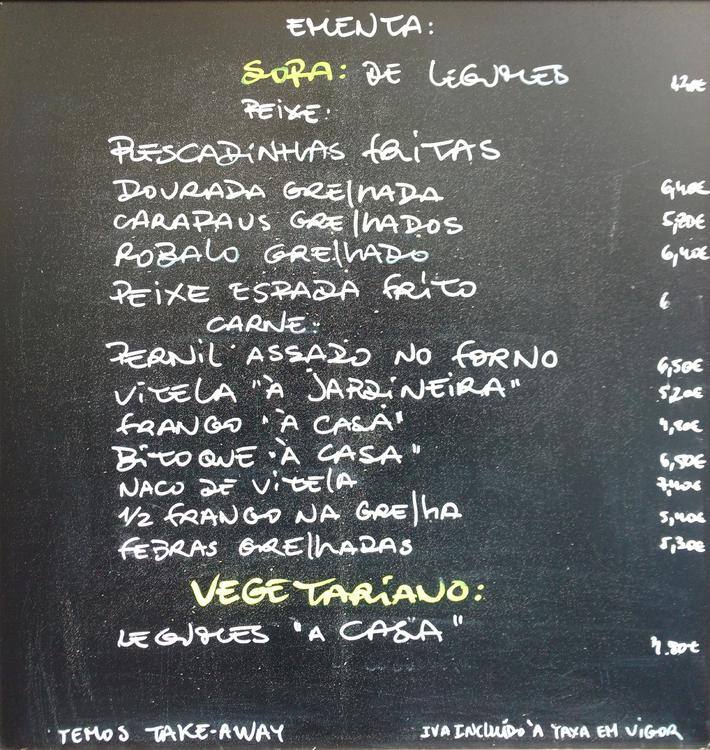 EMENTA:
SOPA: DE LEGUMES 1,20€
PEIXE:
PESCADINHAS FRITAS
DOURADA GRELHADA 6,40€
CARAPAUS GRELHADOS 5,80€
ROBALO GRELHADO 6,40€
PEIXE ESPADA FRITO 6
CARNE:
PERNIL ASSADO NO FORNO 6,50€
VITELA "À JARDINEIRA" 5,20€
FRANGO "À CASA" 4,80€
BITOQUE "À CASA" 6,50€
NACO DE VITELA 7,40€
1/2 FRANGO NA GRELHA 5,40€
FEBRAS GRELHADAS 5,30€
VEGETARIANO:
LEGUMES "A CASA" 4.80€
TEMOS TAKE-AWAY
IVA INCLUÍDO À TAXA EM VIGOR